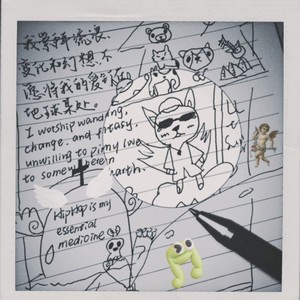 我崇拜流浪、
变化和幻想、不
愿将我的爱钉在
地球某处。
I worship wandering,
change, and fantasy,
unwilling to pin my love
to somewhere in
earth.
HipHop is my
essential
medicine